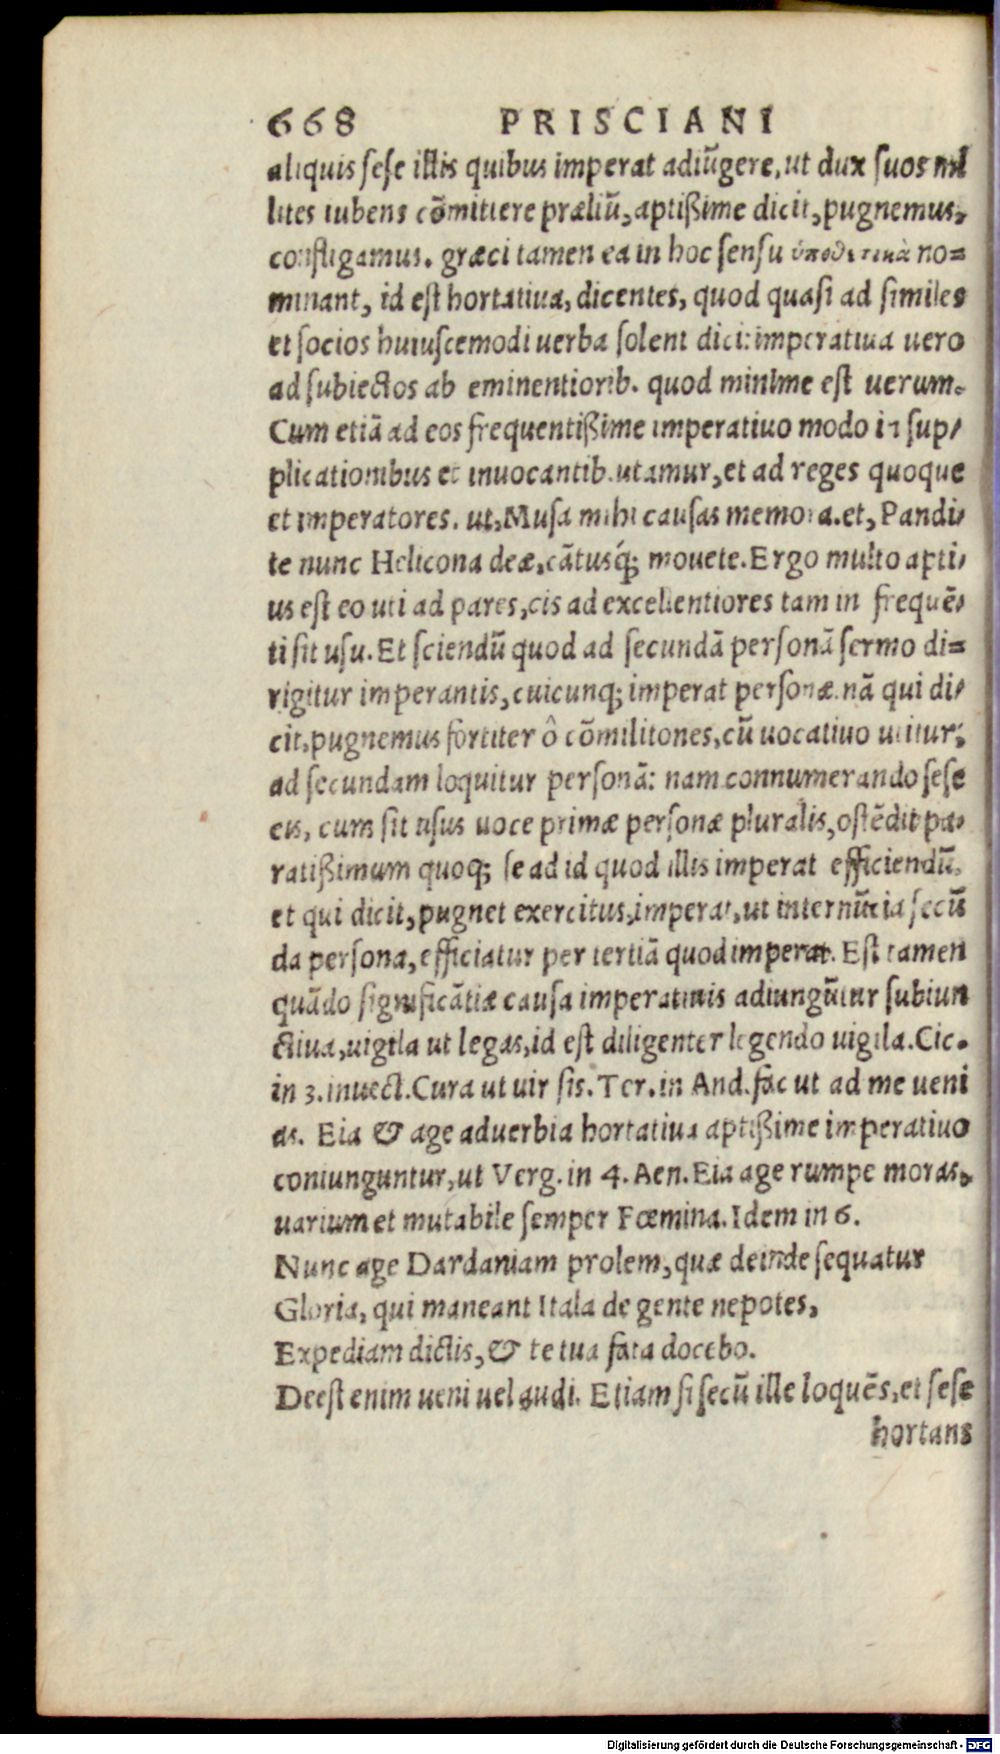 668 PRISCIANI
aliquis sese illis quibus imperat adiūgere, ut dux suos mi
lites iubens cōmittere præliū, aptißime dicit, pugnemus,
confligamus. græci tamen ea in hoc sensu no=
minant, id est hortatiua, dicentes, quod quasi ad similes
et socios huiuscemodi uerba solent dici: imperatiua uero
ad subiectos ab eminentiorib. quod minime est uerum.
Cum etiā ad eos frequentißime imperatiuo modo in sup/
plicationibus et inuocantib. utamur, et ad reges quoque
et imperatores. ut, Musa mihi causas memora. et, Pandi/
te nunc Helicona deæ, cātusq́; mouete. Ergo multo apti/
us est eo uti ad pares, cis ad excellentiores tam in frequē/
ti sit usu. Et sciendū quod ad secundā personā sermo di=
rigitur imperantis, cuicunq; imperat personæ. nā qui di/
cit, pugnemus fortiter ô cōmilitones, cū uocatiuo utitur;
ad secundam loquitur personā: nam connumerando sese
eis, cum sit usus uoce primæ personæ pluralis, ostēdit pa/
ratißimum quoq; se ad id quod illis imperat efficiendū.
et qui dicit, pugnet exercitus, imperat, ut internūcia secū
da persona, efficiatur per tertiā quod imperat. Est tamen
quādo significātiæ causa imperatiuis adiungūtur subiun
ctiua, uigila ut legas, id est diligenter legendo uigila. Cic.
in 3. inuect. Cura ut uir sis. Ter. in And. fac ut ad me ueni
as. Eia & age aduerbia hortatiua aptißime imperatiuo
coniunguntur, ut Verg. in 4. Aen. Eia age rumpe moras,
uarium et mutabile semper Fœmina. Idem in 6.
Nunc age Dardaniam prolem, quæ deinde sequatur
Gloria, qui maneant Itala de gente nepotes,
Expediam dictis, & te tua fata docebo.
Deest enim ueni uel audi. Etiam si secū ille loquēs, et sese
hortans
Digitalisierung gefördert durch die Deutsche Forschungsgemeinschaft - DFG